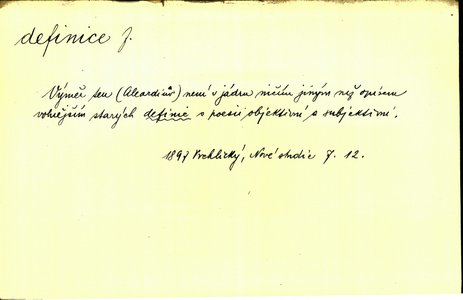 definice f.
Výměr ten (Aleardiův) není v jádru ničím jiným než opisem
volnějším starých definic o poesii objektivní a subjektivní.
1897 Vrchlický, Nové studie 7. 12.